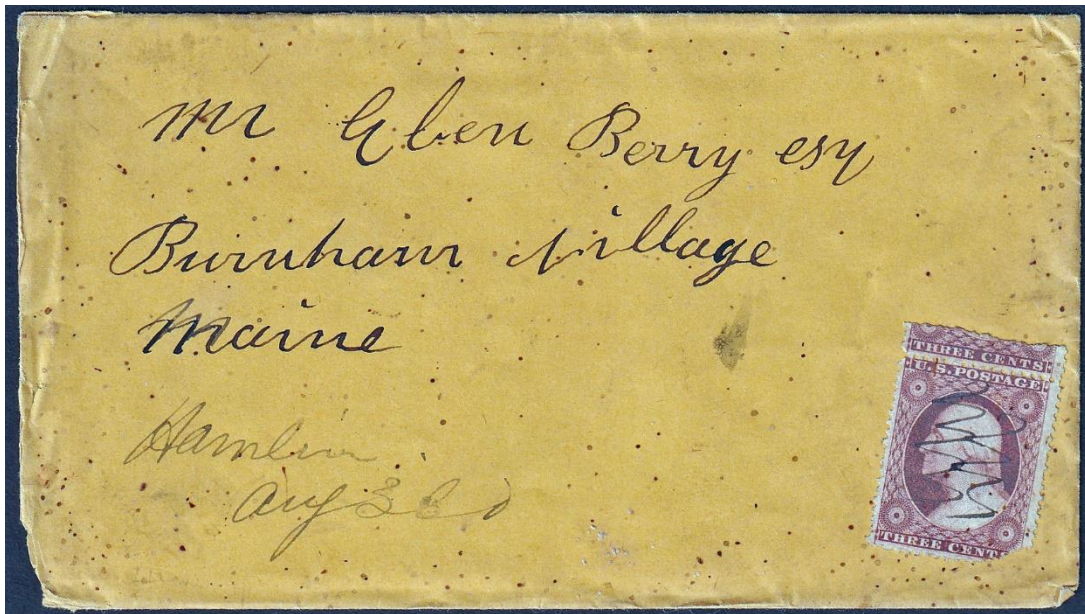 Mr Eben Berry esq
Burnham village
Maine
Hamlin
Aug 3
THREE CENTS
U.S. POSTAGE
THREE CENTS